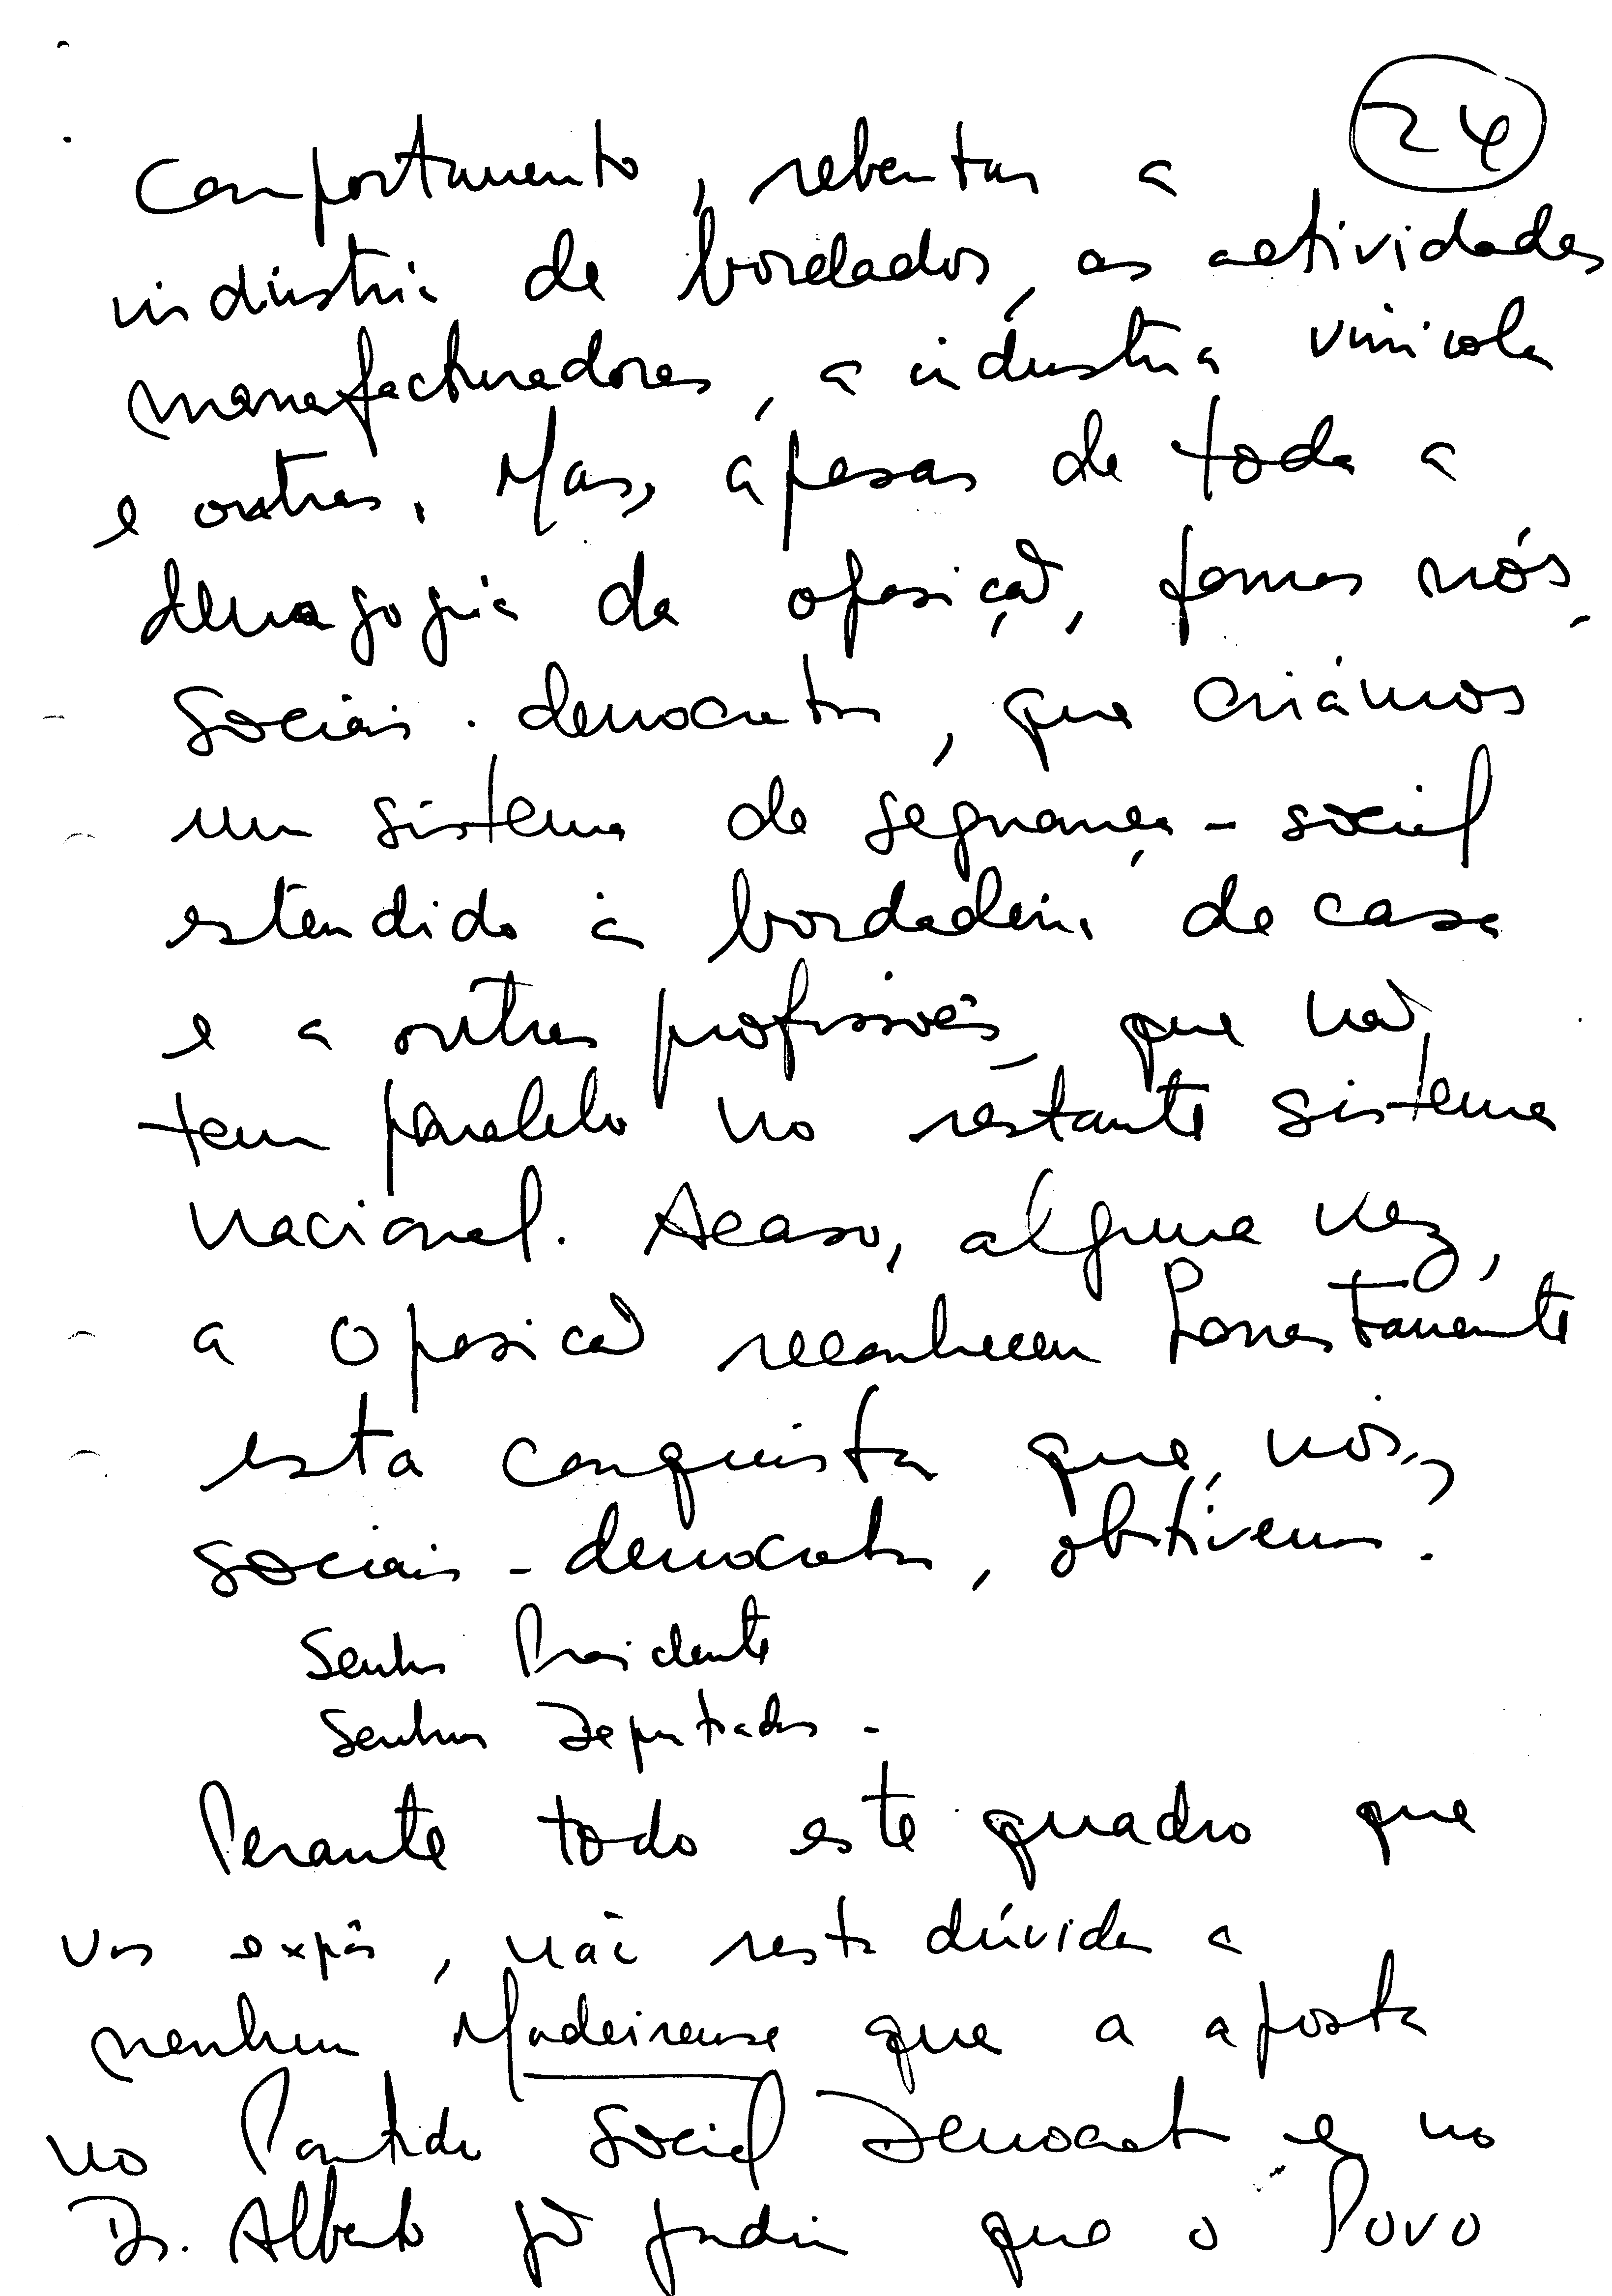 24
comportamento, rebentar a
indústria de bordados, as actividades
manufacturadoras, a indústria vinícola
e outras. Mas, apesar de toda a
demagogia da oposição, fomos nós,
sociais-democratas, que criámos
um sistema de segurança-social
estendido à bordadeira de casa
e a outras profissões, que não
tem paralelo no restante sistema
nacional. Acaso, alguma vez,
a Oposição reconheceu honestamente
esta conquista que, nós,
sociais-democratas, obtivemos?
Senhor Presidente
Senhores Deputados -
Perante todo este quadro que
vos expôs, não resta dúvida a
nenhum Madeirense que a aposta
no Partido Social Democrata e no
Dr. Alberto João Jardim que o Povo